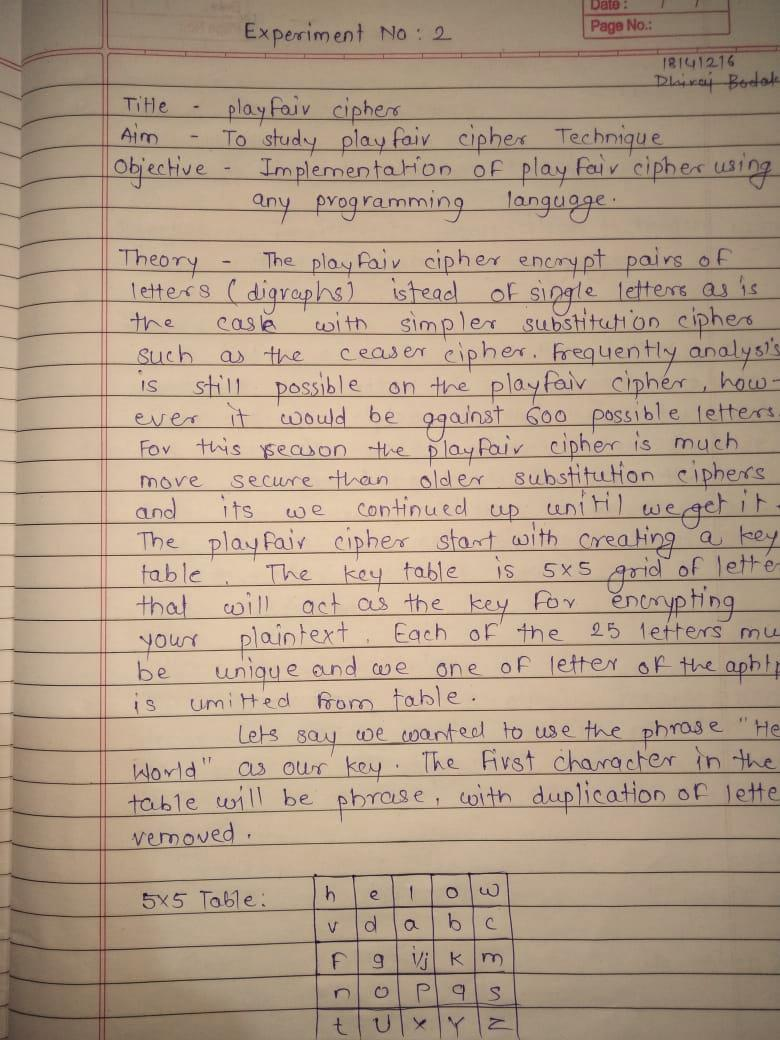 Date: / /
Page No.:
Experiment No : 2
18141216
Dhiraj Bodak
Title - playfair cipher
Aim - To study playfair cipher Technique
Objective - Implementation of playfair cipher using
any programming language.
Theory - The playfair cipher encrypt pairs of
letters (digraphs) istead of single letters as is
the case with simpler substitution cipher
such as the ceaser cipher. Frequently analysis
is still possible on the playfair cipher, how-
ever it would be against 600 possible letters
For this reason the playfair cipher is much
more secure than older substitution ciphers
and its we continued up unitil we get it.
The playfair cipher start with creating a key
table. The key table is 5x5 grid of lette
that will act as the key for encrypting
your plaintext. Each of the 25 letters mu
be unique and we one of letter of the aphtp
is umitted from table.
Lets say we wanted to use the phrase "He
World" as our key. The first character in the
table will be phrase, with duplication of lette
removed.
5x5 Table:
h e l o w
r d a b c
f g i/j k m
n o p q s
t U x Y Z